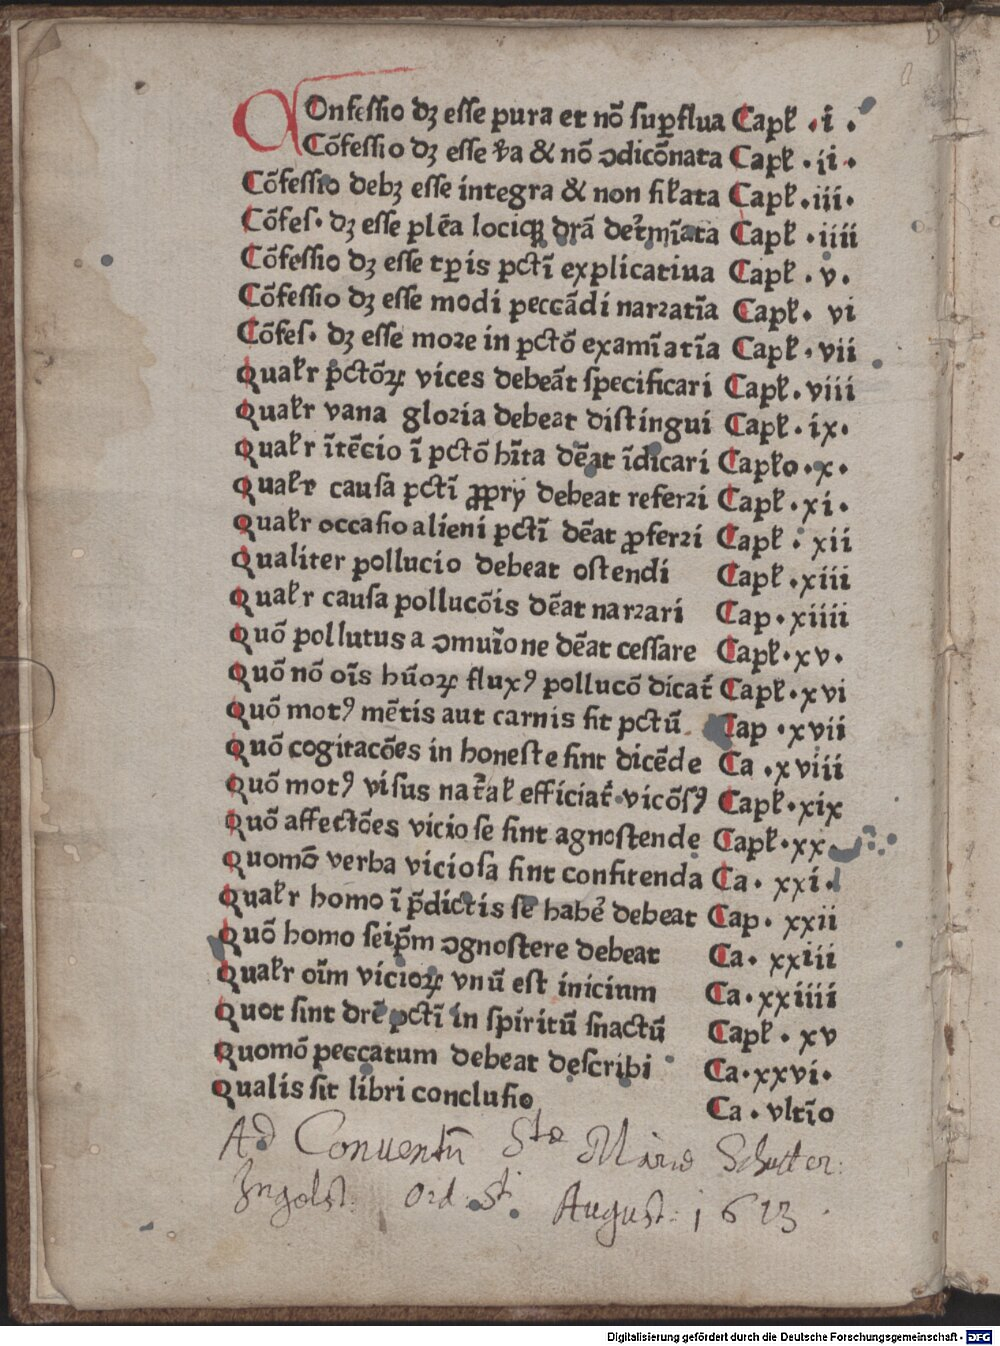 COnfessio dꝫ esse pura et nõ suꝑflua Capł .i.
Cõfessio dꝫ esse v̉a & nõ ↄdicõnata Capł .ii.
Cõfessio debꝫ esse integra & non sił'ata Capł .iii.
Cõfes. dꝫ esse plẽa lociqꝫ drã det̉mĩata Capł .iiii
Cõfessio dꝫ esse tꝑis pctĩ explicatiua Capł . v.
Cõfessio dꝫ esse modi peccãdi narratĩa Capł. vi
Cõfes. dꝫ esse more in pctõ examĩatĩa Capł .vii
Qualr p̃ctõꝝ vices debeãt specificari Capł. viii
Qualr vana gloria debeat distingui Capł. ix.
Qualr ĩtẽcio ĩ pctõ hĩta dẽat ĩdicari Capło .x.
Qualr causa pctĩ ꝓpry debeat referri Capł .xi.
Qualr occasio alieni pctĩ dẽat ꝓferri Capł . xii
Qualiter pollucio debeat ostendi Capł .xiii
Qualr causa pollucõis dẽat narrari Cap .xiiii
Quõ pollutus a ↄmuĩone dẽat cessare Capł.xv.
Quõ nõ oĩs hũoꝝ fluxꝰ pollucõ dicat̃ Capł.xvi
Quõ motꝰ mẽtis aut carnis sit pctũ Cap .xvii
Quõ cogitacões in honeste sint dicẽde Ca .xviii
Quõ motꝰ visus nat̃al efficiat̃ vicõsꝰ Capł.xix
Quõ affectões viciose sint agnostende Capł.xx.
Quomõ verba viciosa sint confitenda Ca. xxi.
Qualr homo ĩ p̃dictis se habe̓ debeat Cap. xxii
Quõ homo seip̃m ↄgnostere debeat Ca. xxiii
Qualr oĩm vicioꝝ vnũ est inicium Ca.xxiiii
Quot sint drẽ pctĩ in spiritũ snactũ Capł . xv
Quomõ peccatum debeat describi Ca.xxvi.
Qualis sit libri conclusio Ca . vltĩo
Ad Conventũ Stæ Mariæ Schutter:
Ingolst: Ord. St. August: 1623.
Digitalisierung gefördert durch die Deutsche Forschungsgemeinschaft - DFG